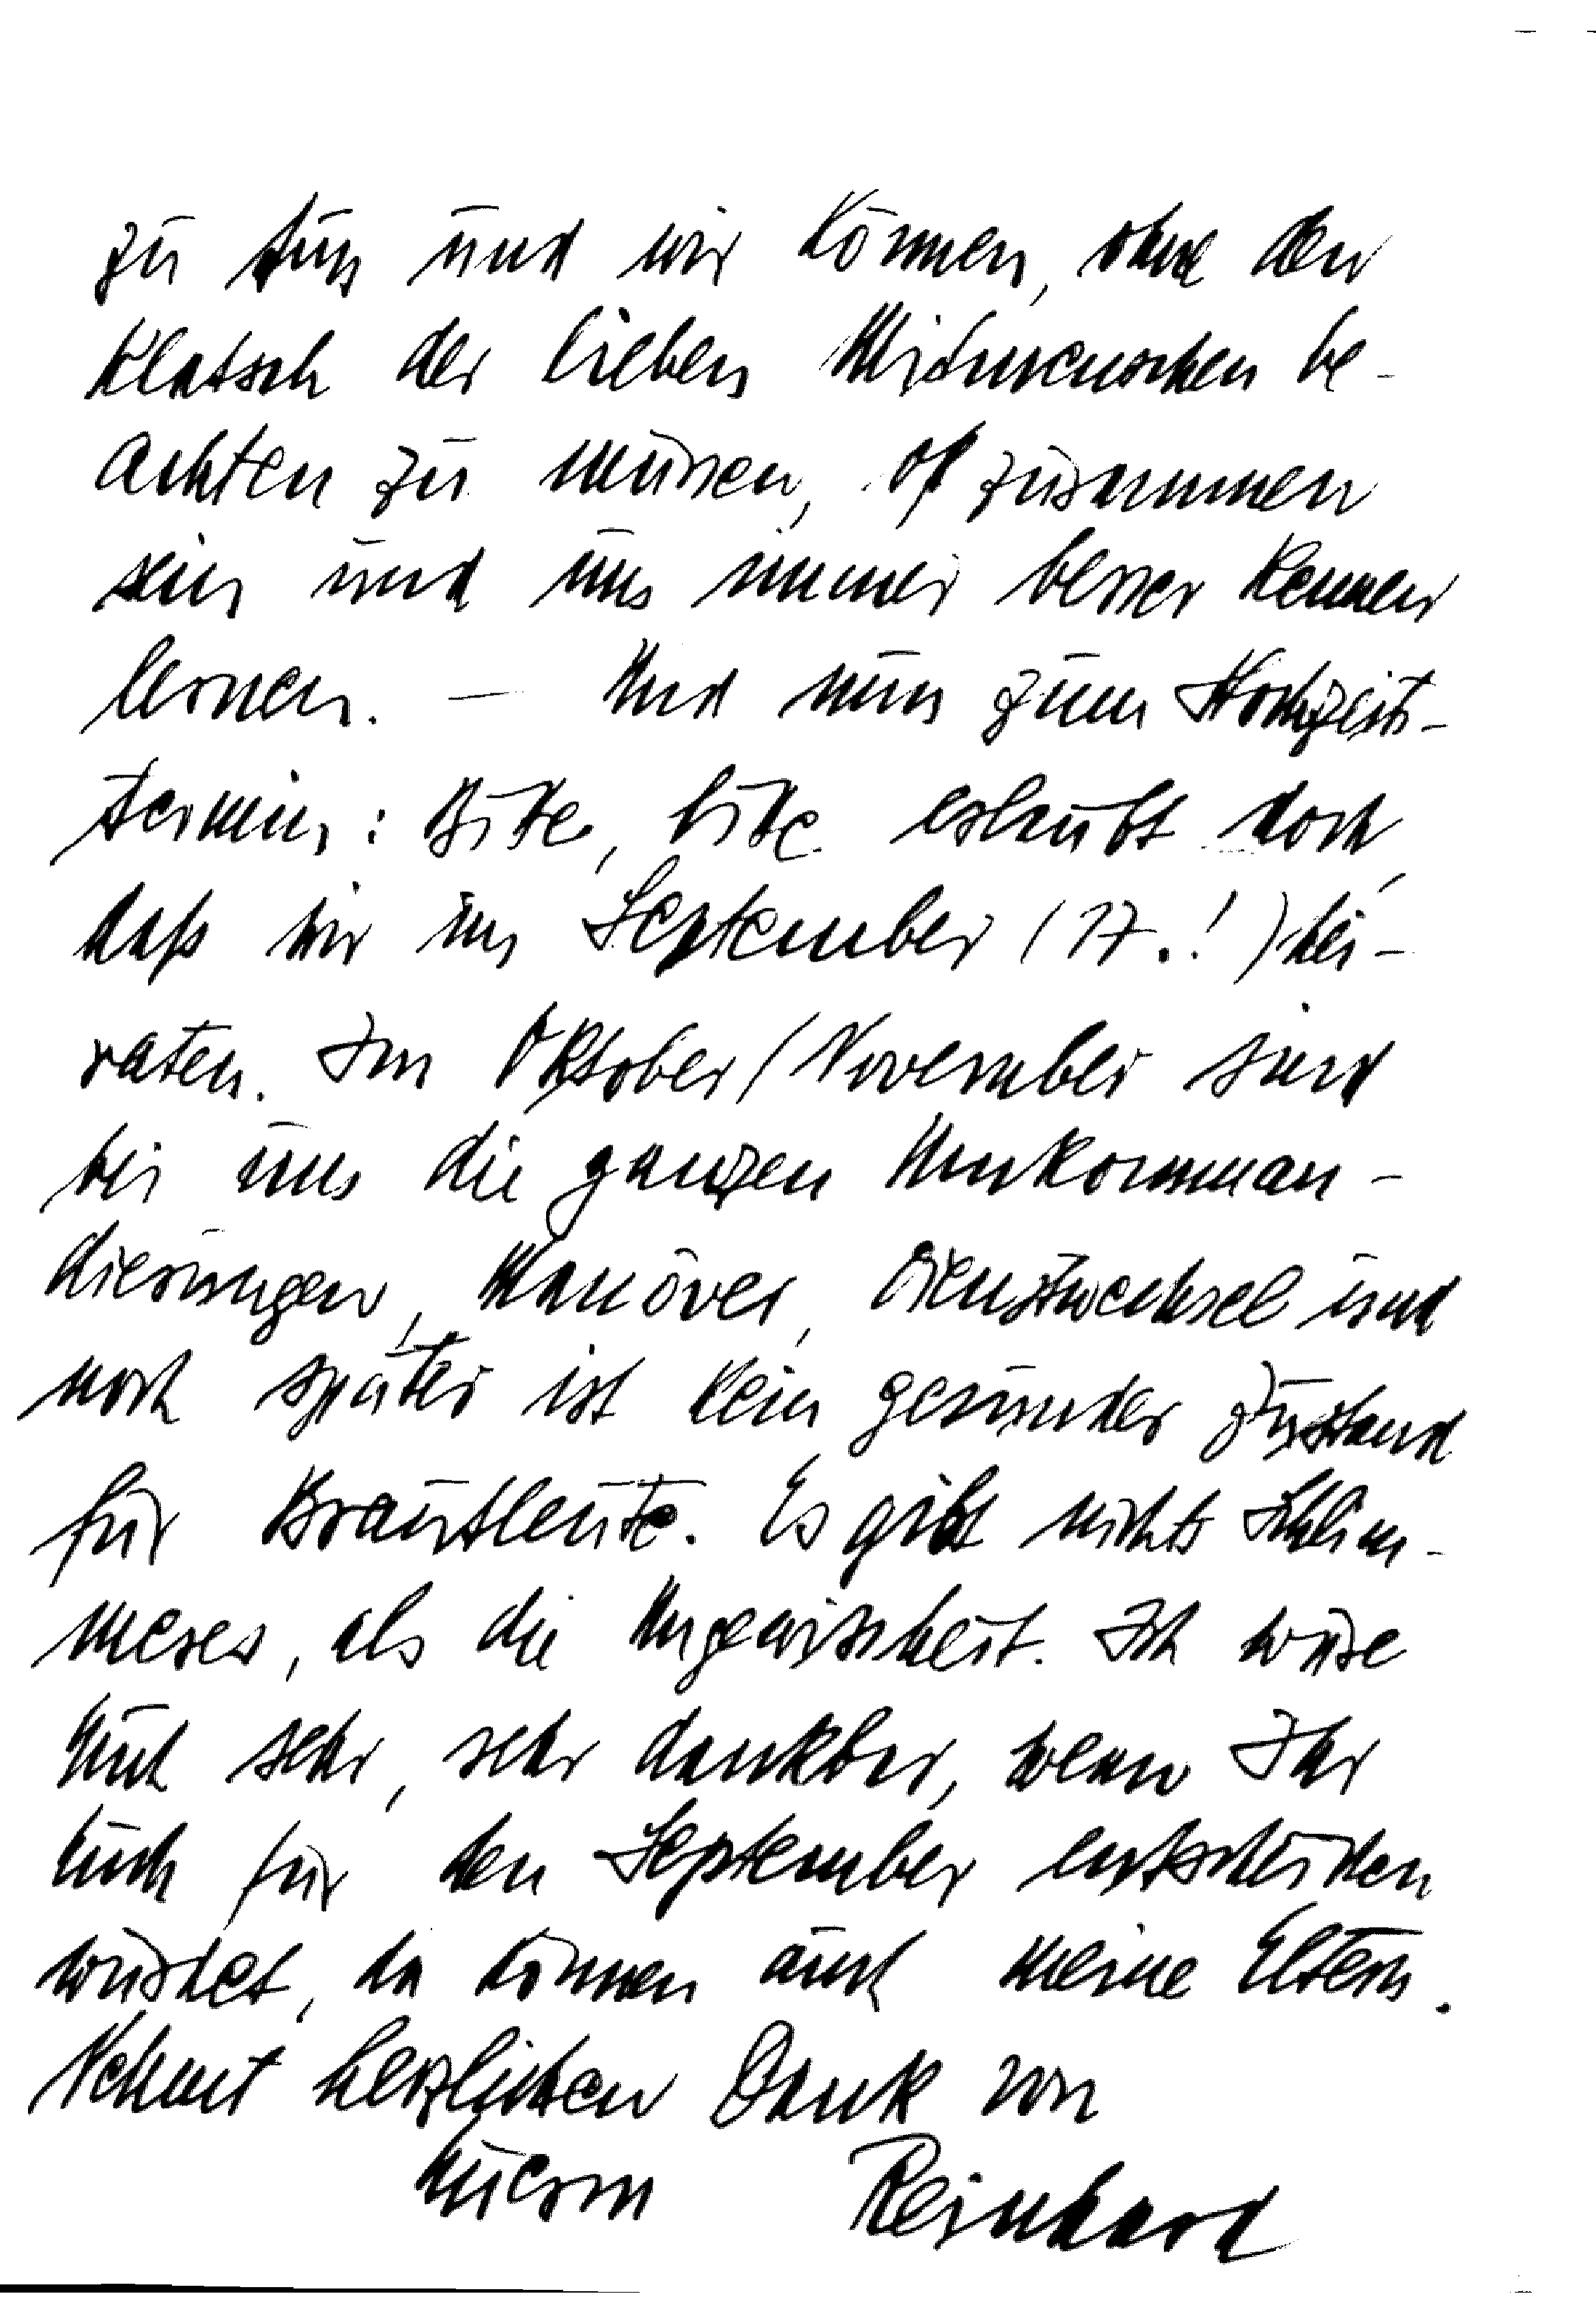 zu tun und wir können, ohne den
Klatsch der lieben Mitmenschen be-
achten zu müssen, oft zusammen
sein und uns immer besser kennen
lernen. — Und nun zum Hochzeits-
termin: Bitte, bitte erlaubt doch,
daß wir im September (17.!) hei-
raten. Im Oktober/November sind
bei uns die ganzen Umkomman-
dierungen, Manöver, Dienstwechsel und
noch später ist kein gesunder Zustand
für Brautleute. Es gibt nichts Schlim-
meres, als die Ungewissheit. Ich wäre
Euch sehr, sehr dankbar, wenn Ihr
Euch für den September entscheiden
würdet, da können auch meine Eltern.
Nehmt herzlichen Dank von
Euerm Reinhard